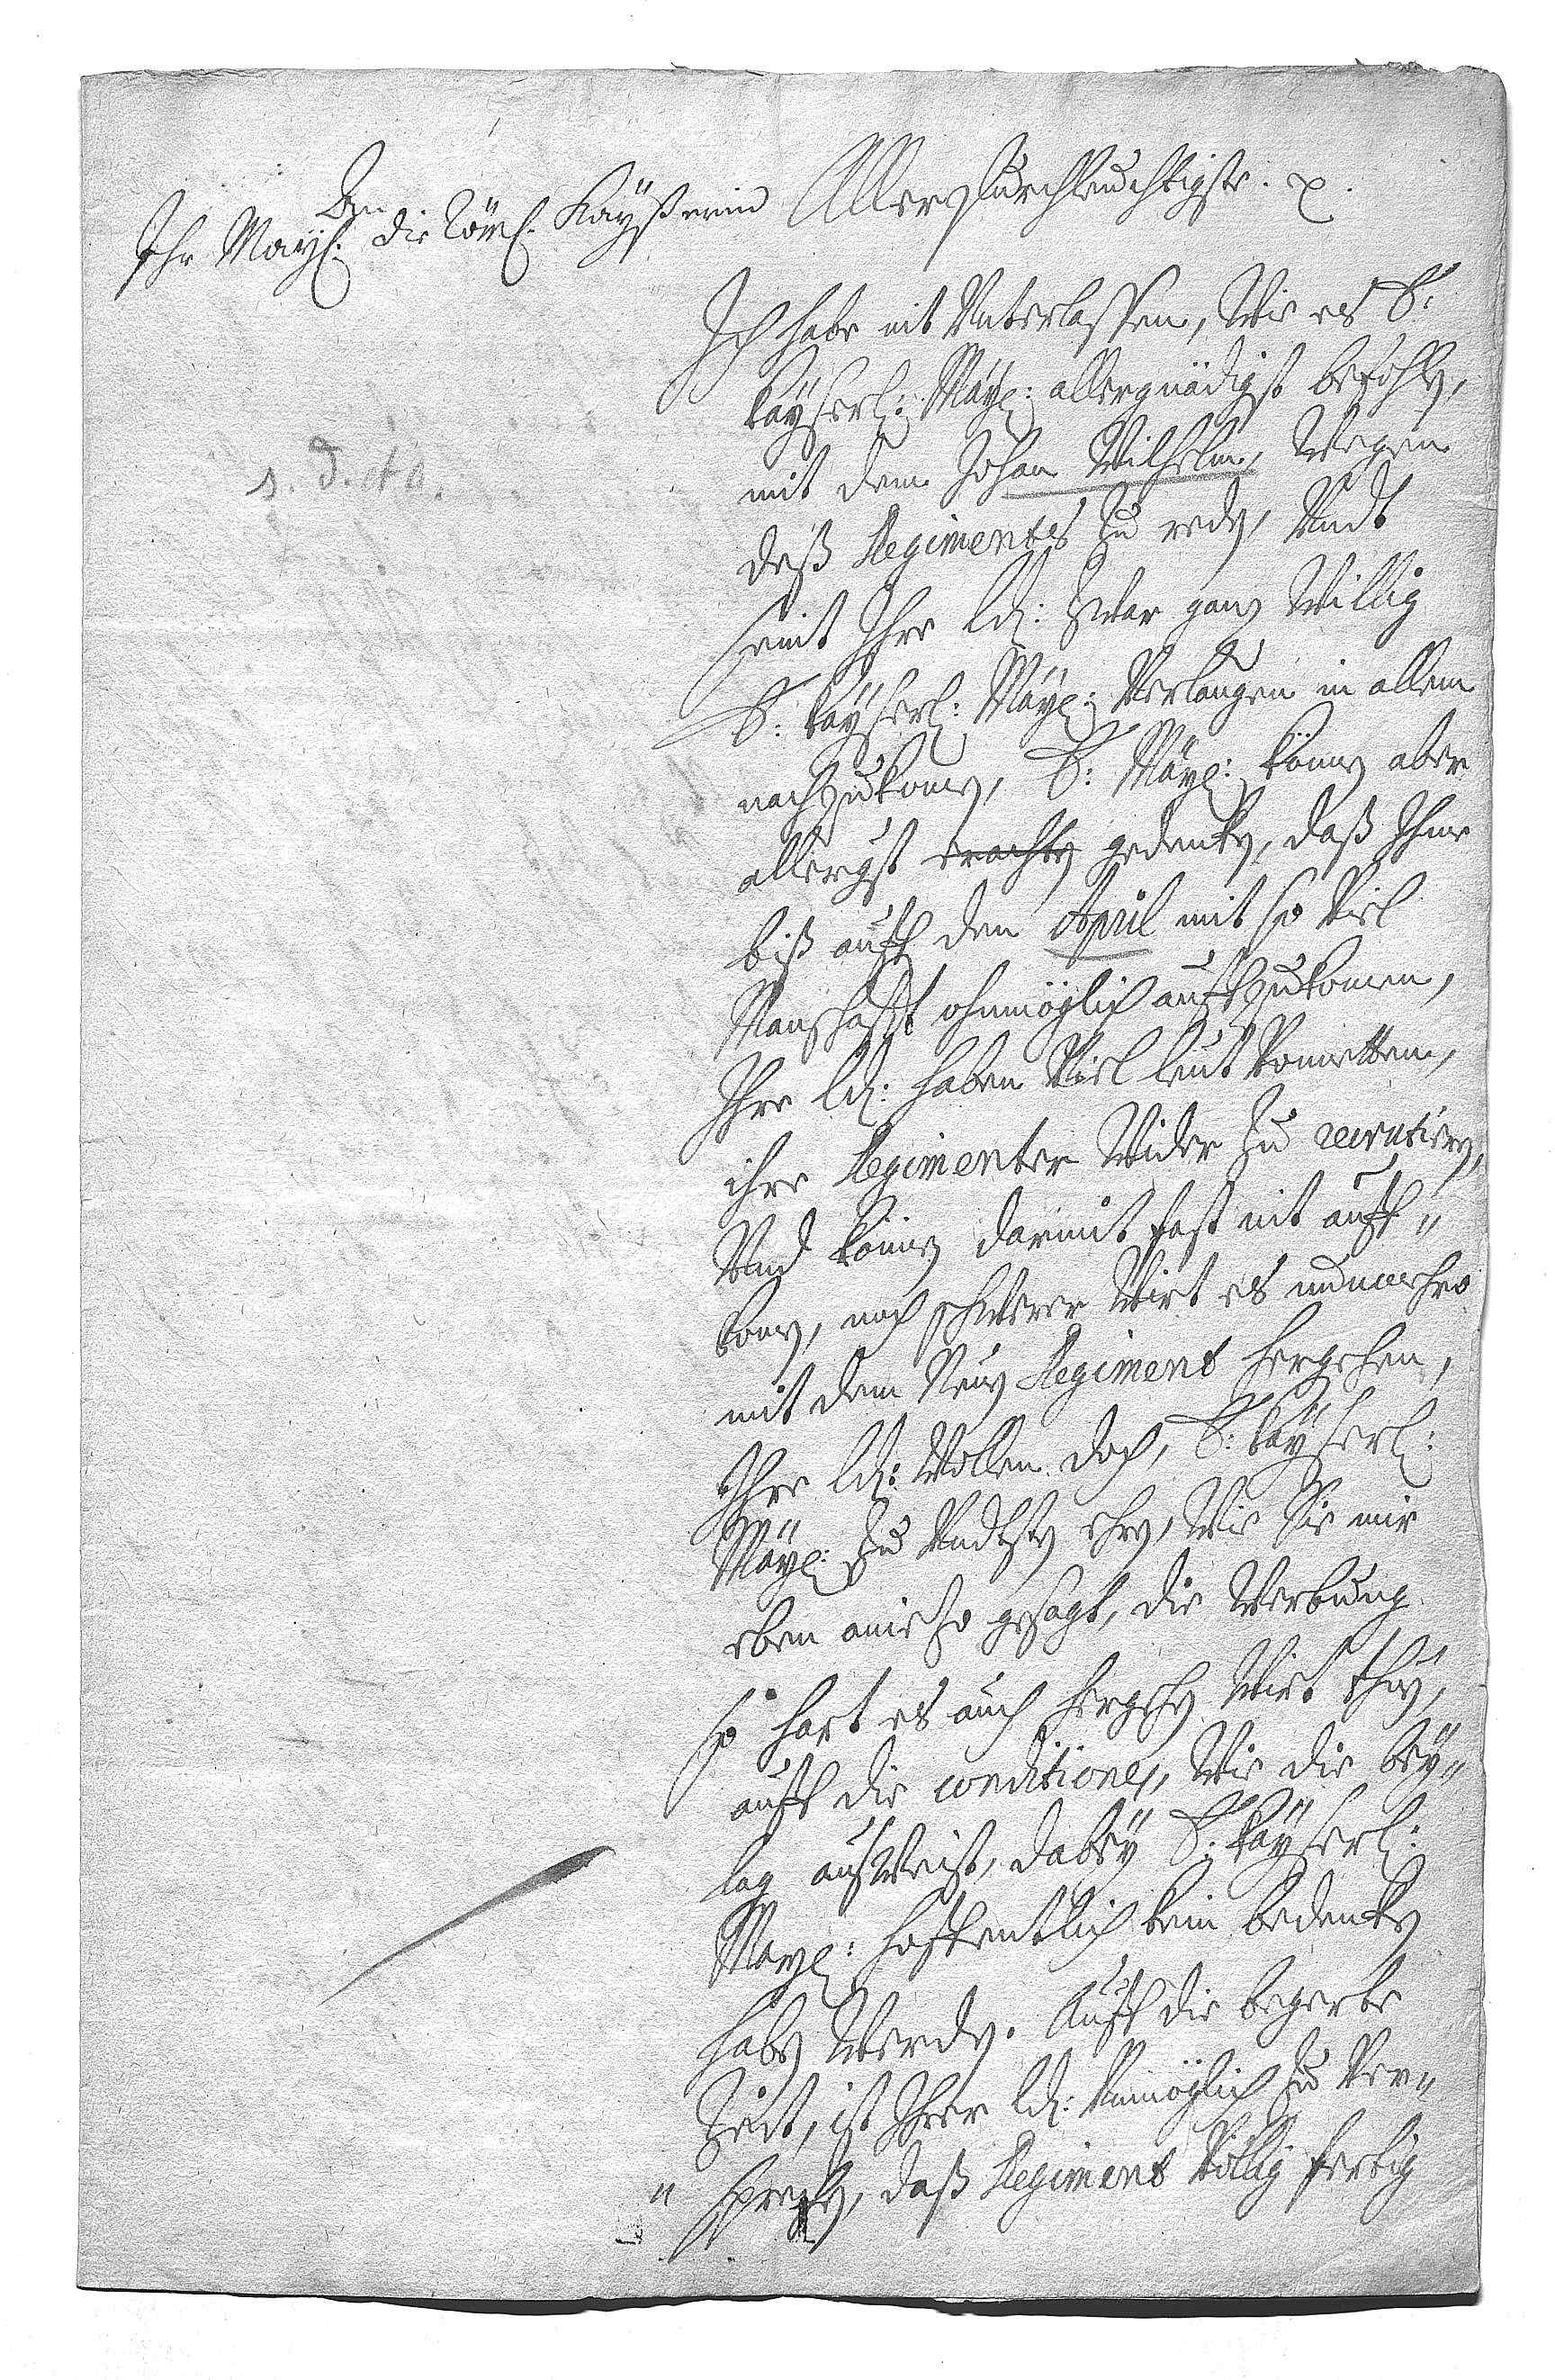 An
Ihr Mayt. die Röm. Kayßerin
Allerdurchleuchtigste. p.
s. d. et a.
Ich habe nit Unterlassen, Wie es E:
kayserl: Mayt: allergnädigst befohlen,
mit dem Johan Wilhelm, Wegen
deß Regimentes zu reden, Undt
seint Ihre Ld: zwar ganz Willig
E: kayserl: Mayt: Verlangen in allem
nachzukommen, E: Mayt: können aber
allergst erachten gedenken, daß Ihme
biß auff den April mit so Viel
Manschafft ohnmöglich auffzukommen,
Ihre Ld: haben Viel leut Vonnetten,
ihre Regimenter Wider zu recrutiern,
Und können darmit fast nit auff-
kommen, noch schwerer Wirt es nunmehro
mit dem Neuen Regiment hergehen,
Ihre Ld: Wollen doch, E: kayserl:
Mayt: zu Undtsten ehren, Wie Sie mir
eben aniezo gesagt, die Werbung
so hart es auch hergehen Wirt thun,
auff die conditiones, Wie die bey-
lag aufWeist, dabey E: kayserl:
Mayt: hoffentlich kein bedenken
haben Werden. Auff die begerte
Zeit, ist Ihrer Ld: Unmöglich zu Ver-
sprechen, daß Regiment Völlig fertig